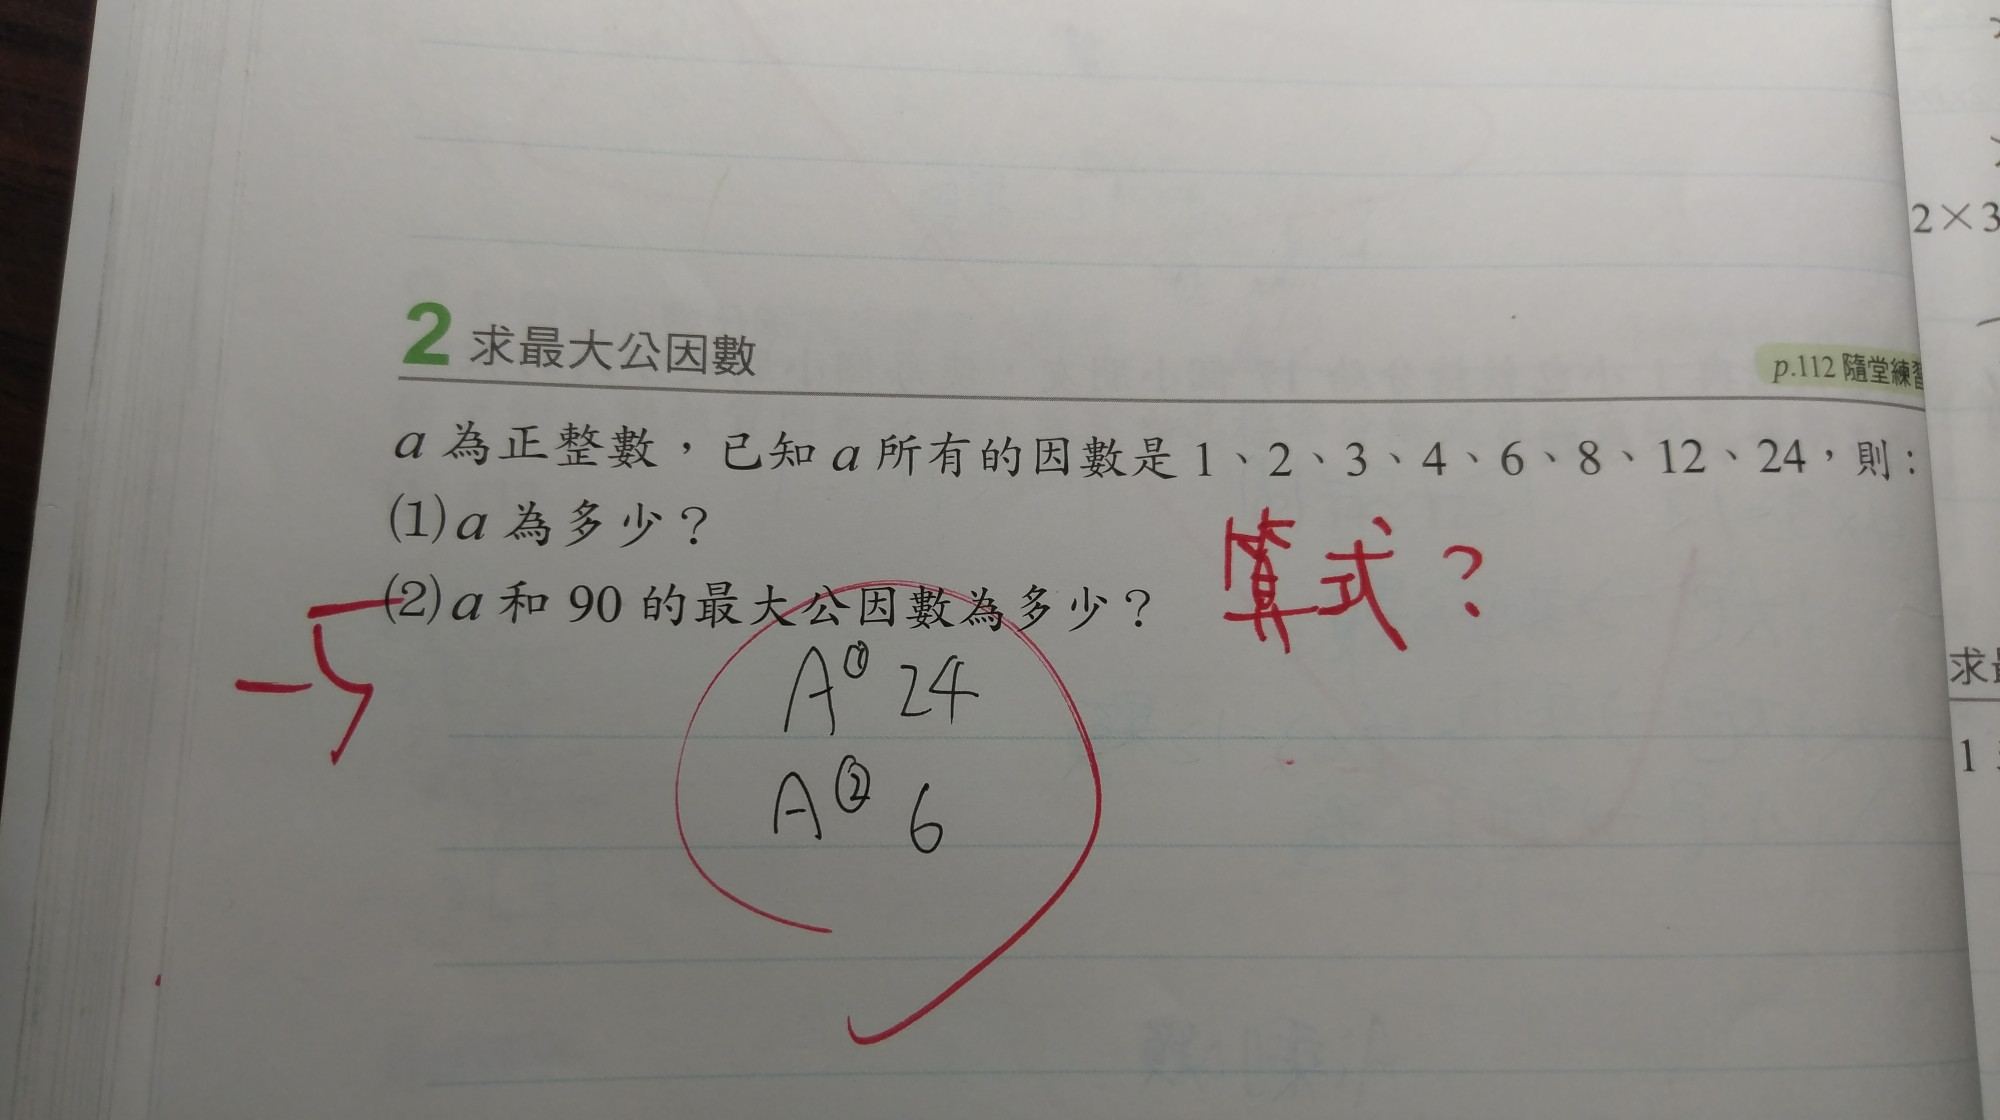 2×3
2 求最大公因數
p.112 隨堂練習
a 為正整數，已知 a 所有的因數是 1、2、3、4、6、8、12、24，則：
(1) a 為多少？
(2) a 和 90 的最大公因數為多少？
算式？
A① 24
A② 6
-5
求
1